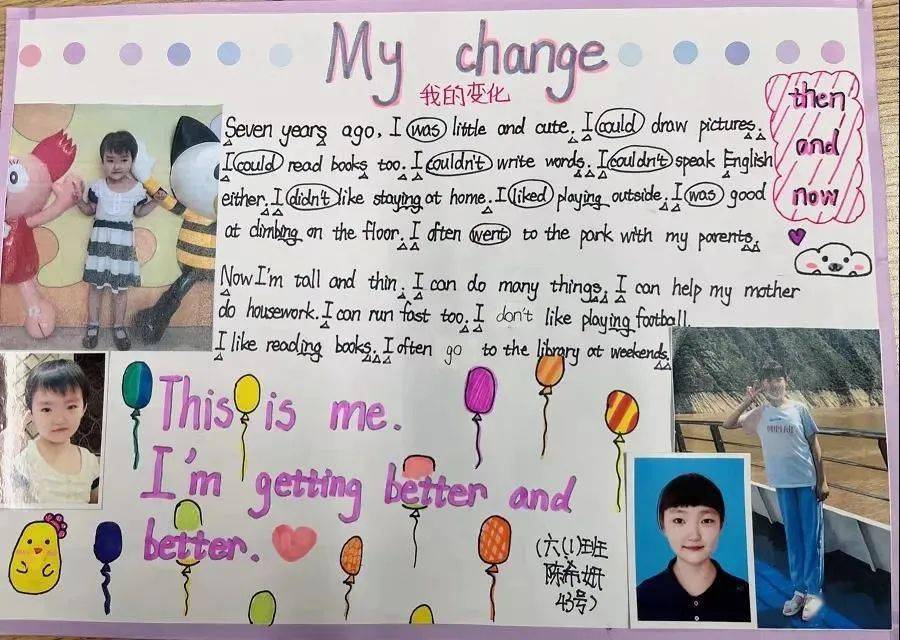 My change
我的变化
then
and
now
Seven years ago, I was little and cute. I could draw pictures.
I could read books too. I couldn't write words. I couldn't speak English
either. I didn't like staying at home. I liked playing outside. I was good
at climbing on the floor. I often went to the park with my parents.
Now I'm tall and thin. I can do many things. I can help my mother
do housework. I can run fast too. I don't like playing football.
I like reading books. I often go to the library at weekends.
This is me.
I'm getting better and
better.
(六(1)班
陈希妍
43号)